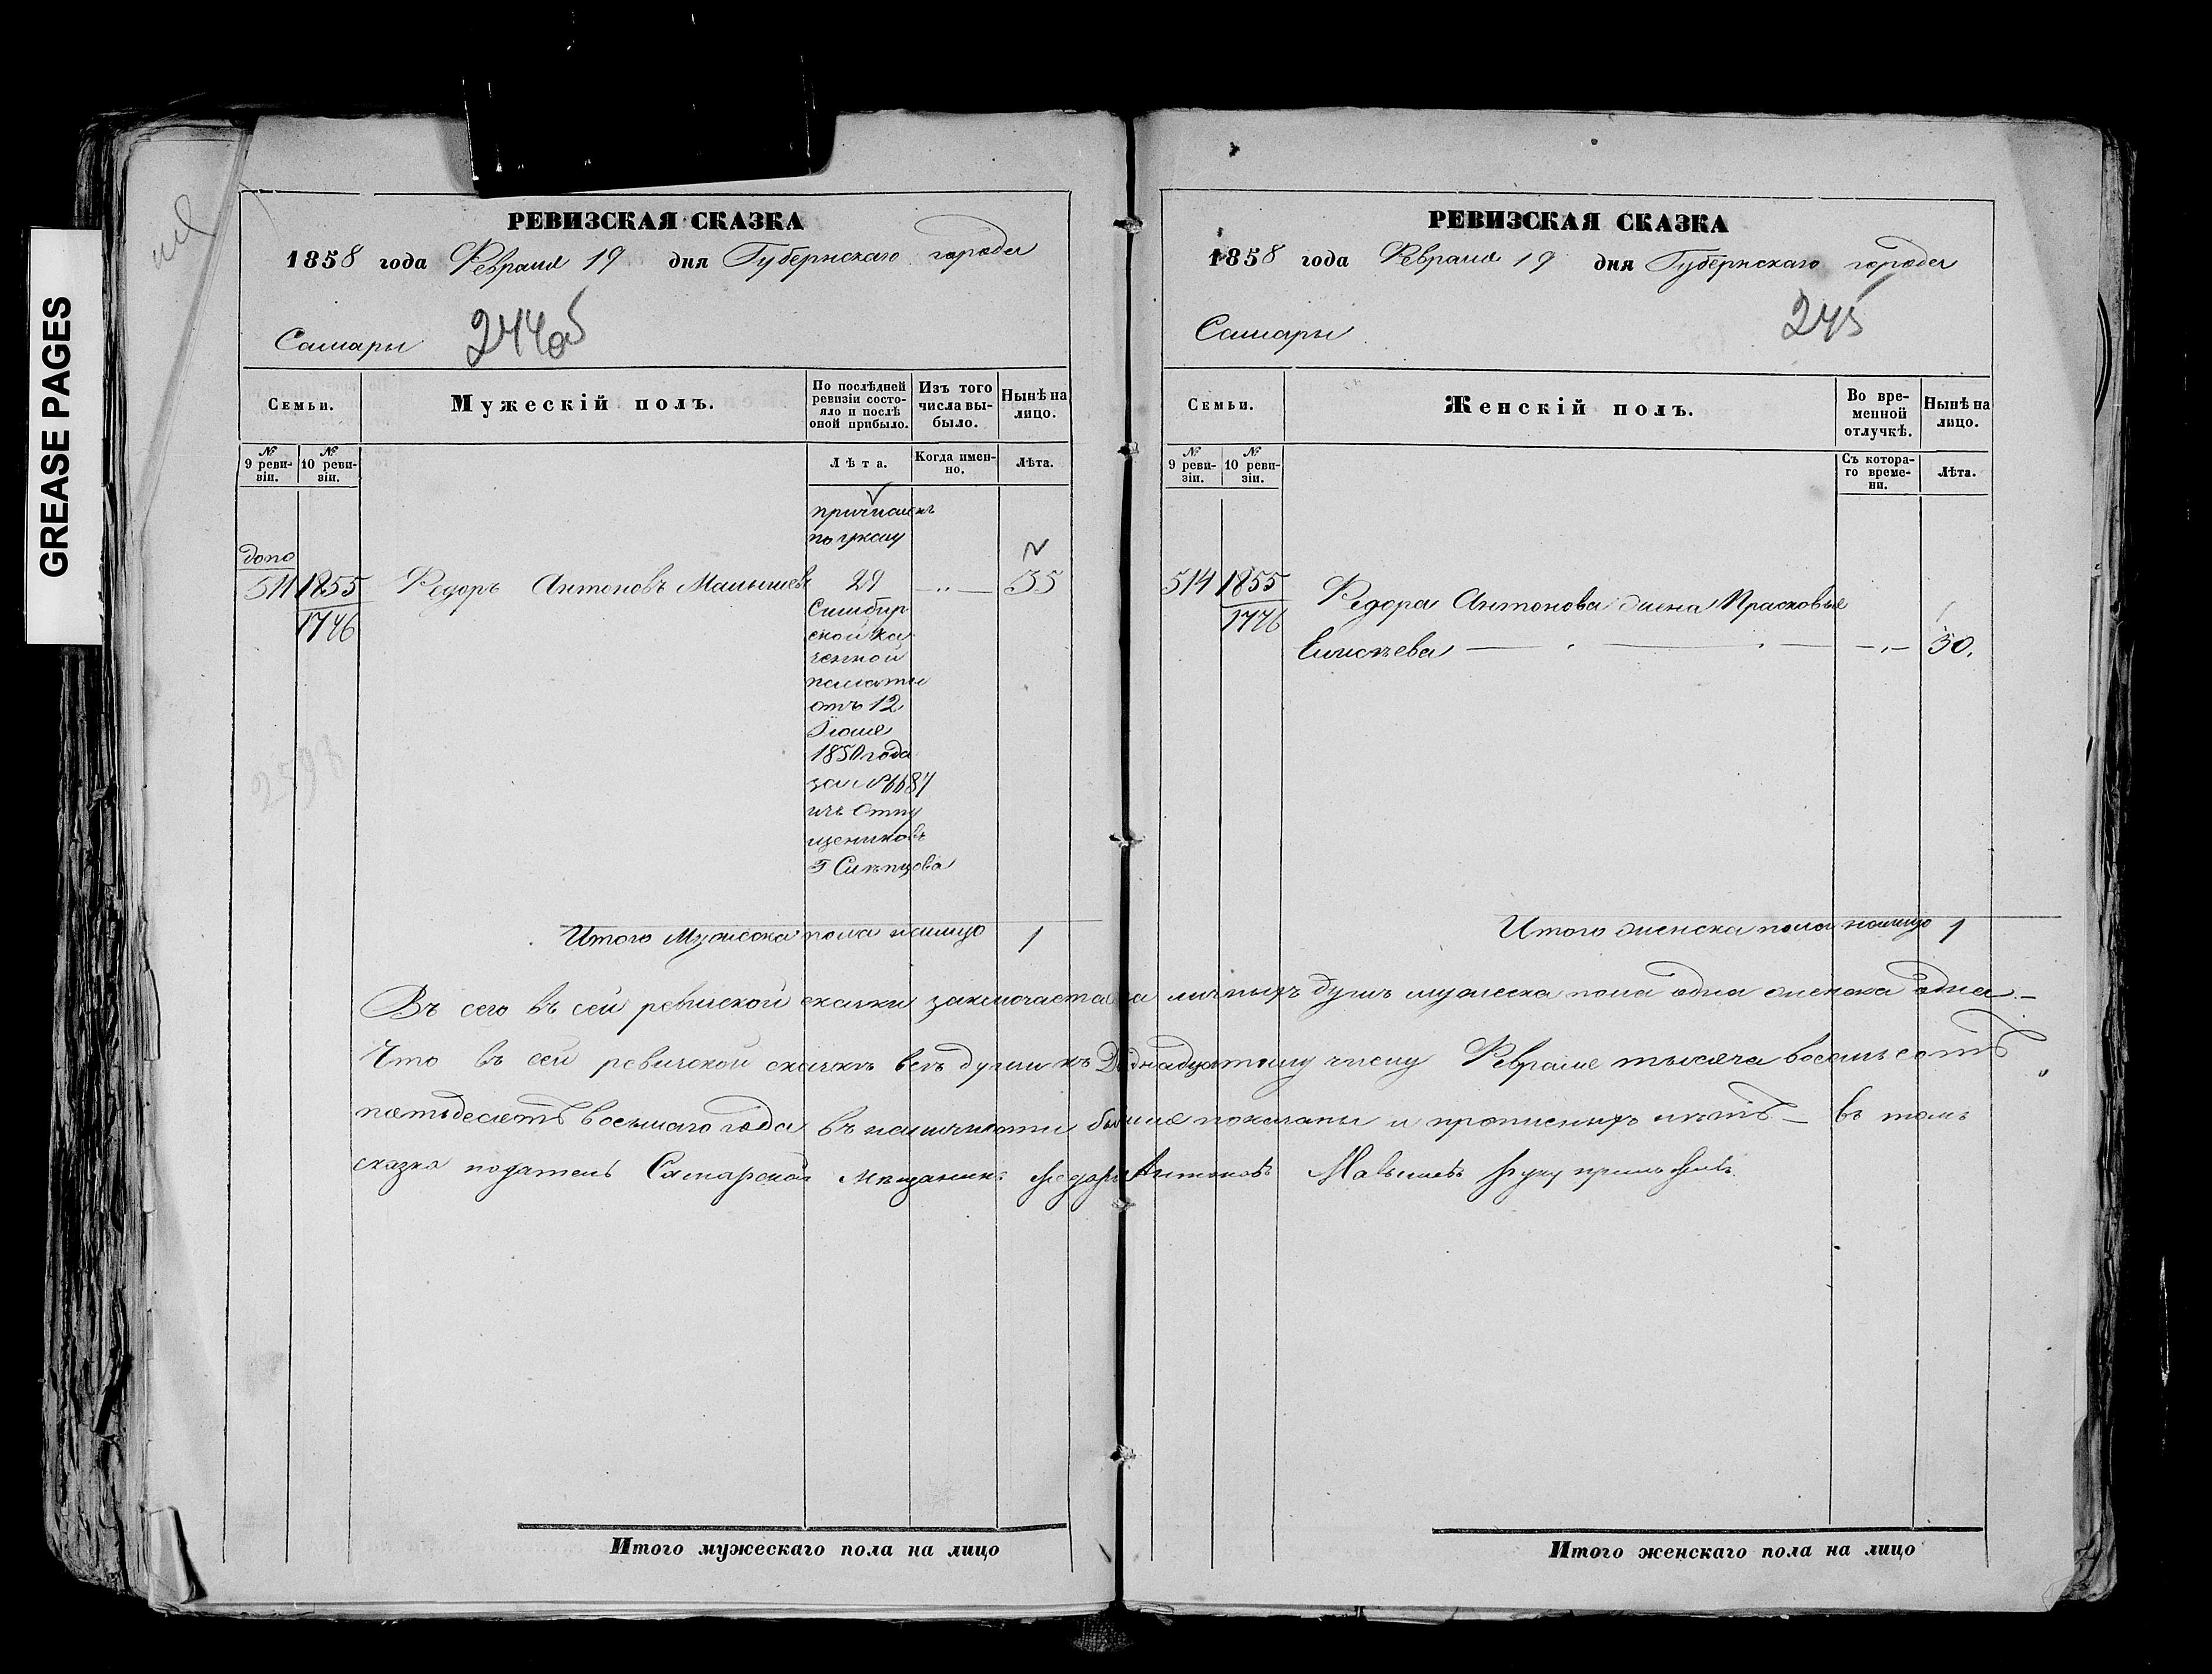 GREASE PAGES
РЕВИЗСКАЯ СКАЗКА
1858 года Февраля 19 дня Губернскаго города
Самары 244об
Семьи. Мужескій полъ. По послѣдней ревизіи состояло и послѣ оной прибыло. Изъ того числа выбыло. Нынѣ на лицо.
№ 9 ревизіи. № 10 ревизіи. Лѣта. Когда именно. Лѣта.
причисленъ
по указу
допо
514 1855 Федоръ Антоновъ Малышевъ 29 —„— 35
1776
Симбир
ской ка
зенной
палаты
отъ 12
Іюля
1850 года
за № 6687
изъ отпу
щениковъ
Г Слѣпцова
2598
Итого Мужеска пола налицо 1
РЕВИЗСКАЯ СКАЗКА
1858 года Февраля 19 дня Губернскаго города
Самары 245
Семьи. Женскій полъ. Во временной отлучкѣ. Нынѣ на лицо.
№ 9 ревизіи. № 10 ревизіи. Съ котораго времени. Лѣта.
514 1855 Федора Антонова жена Прасковья
1776
Елисѣева —„— 30.
Итого женска пола налицо 1
Въ сего въ сей ревиской скаски заключается на личныхъ душъ мужеска пола одна женска одна —
Что въ сей ревизской сказкѣ всѣ души къ Дѣвнадцатому числу Февраля тысяча восемь сотъ
пятьдесятъ восьмаго года въ наличности бывшія показаны и прописныхъ нѣтъ — въ томъ
сказка податель Самарской Мѣщанинъ Федоръ Антоновъ Малышевъ руку приложилъ
Итого мужескаго пола на лицо
Итого женскаго пола на лицо